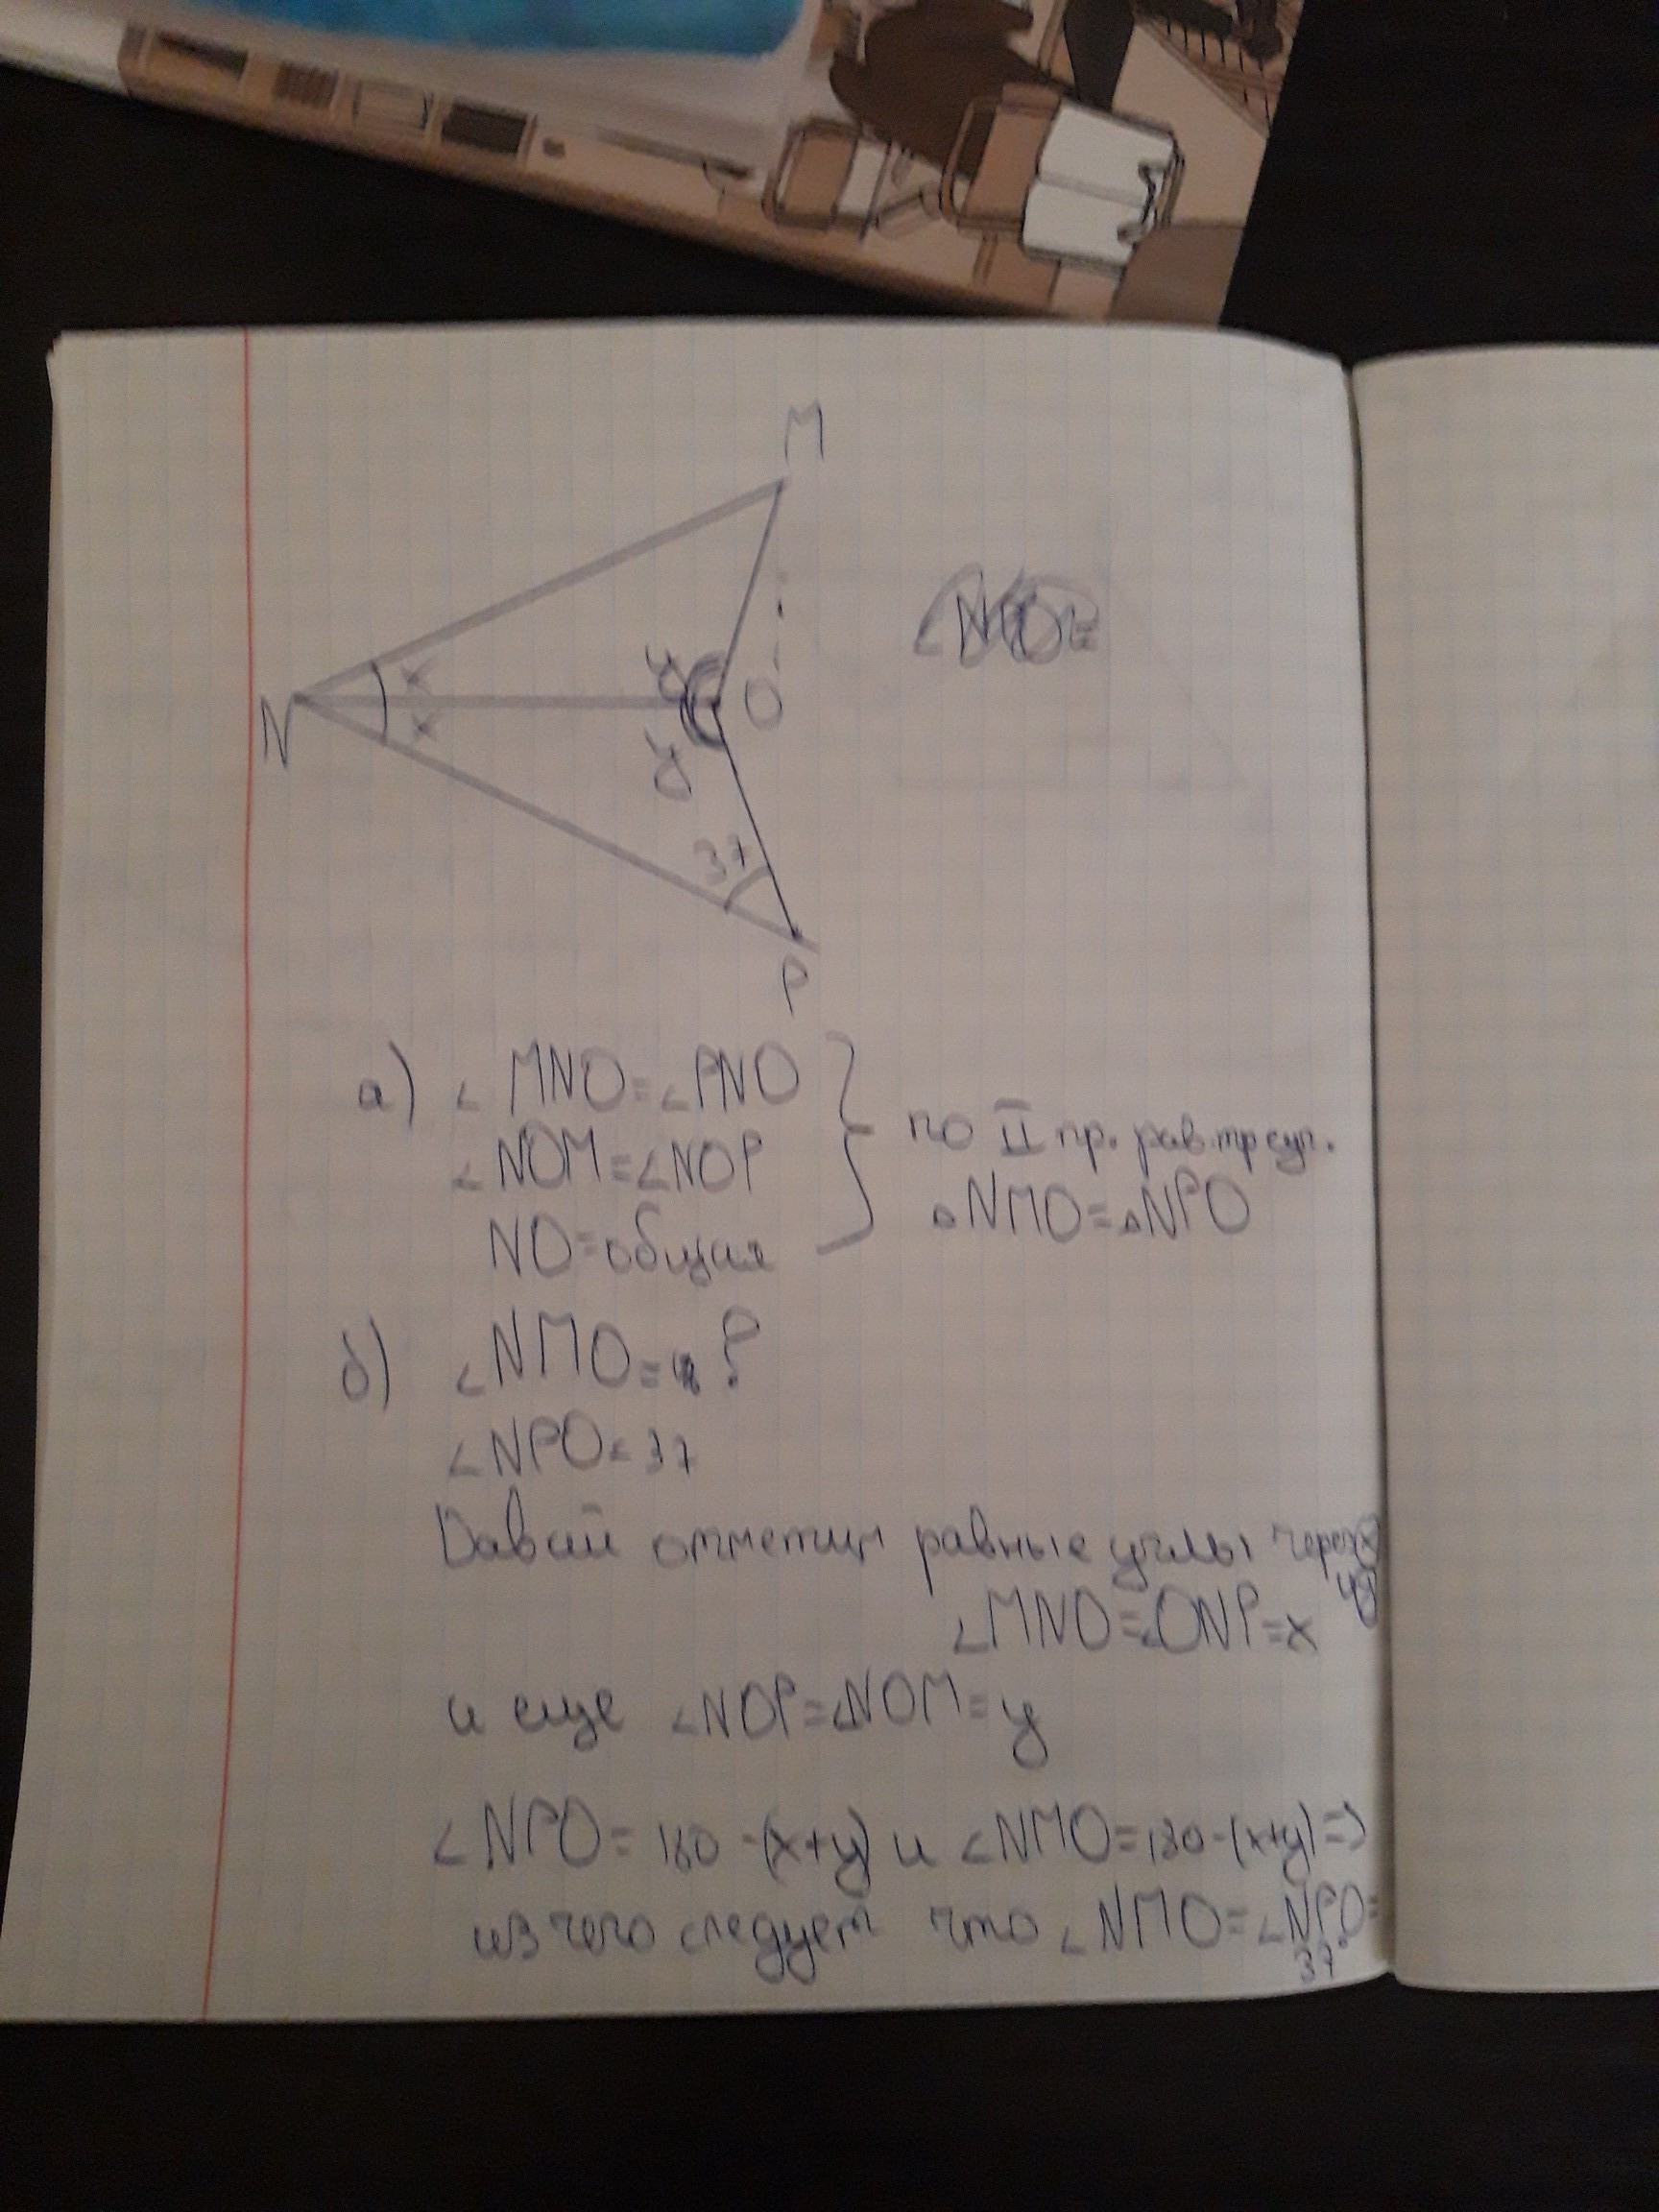 M
x
x
y
y
O
N
37
P
а) ∠MNO=∠PNO
∠NOM=∠NOP
NO=общая
по II пр. рав. треуг.
△NMO=△NPO
б) ∠NMO= ?
∠NPO=37
Давай отметим равные углы через x
и y
∠MNO=∠ONP=x
и еще ∠NOP=∠NOM=y
∠NPO=180-(x+y) и ∠NMO=180-(x+y)=>
из чего следует что ∠NMO=∠NPO=
37°